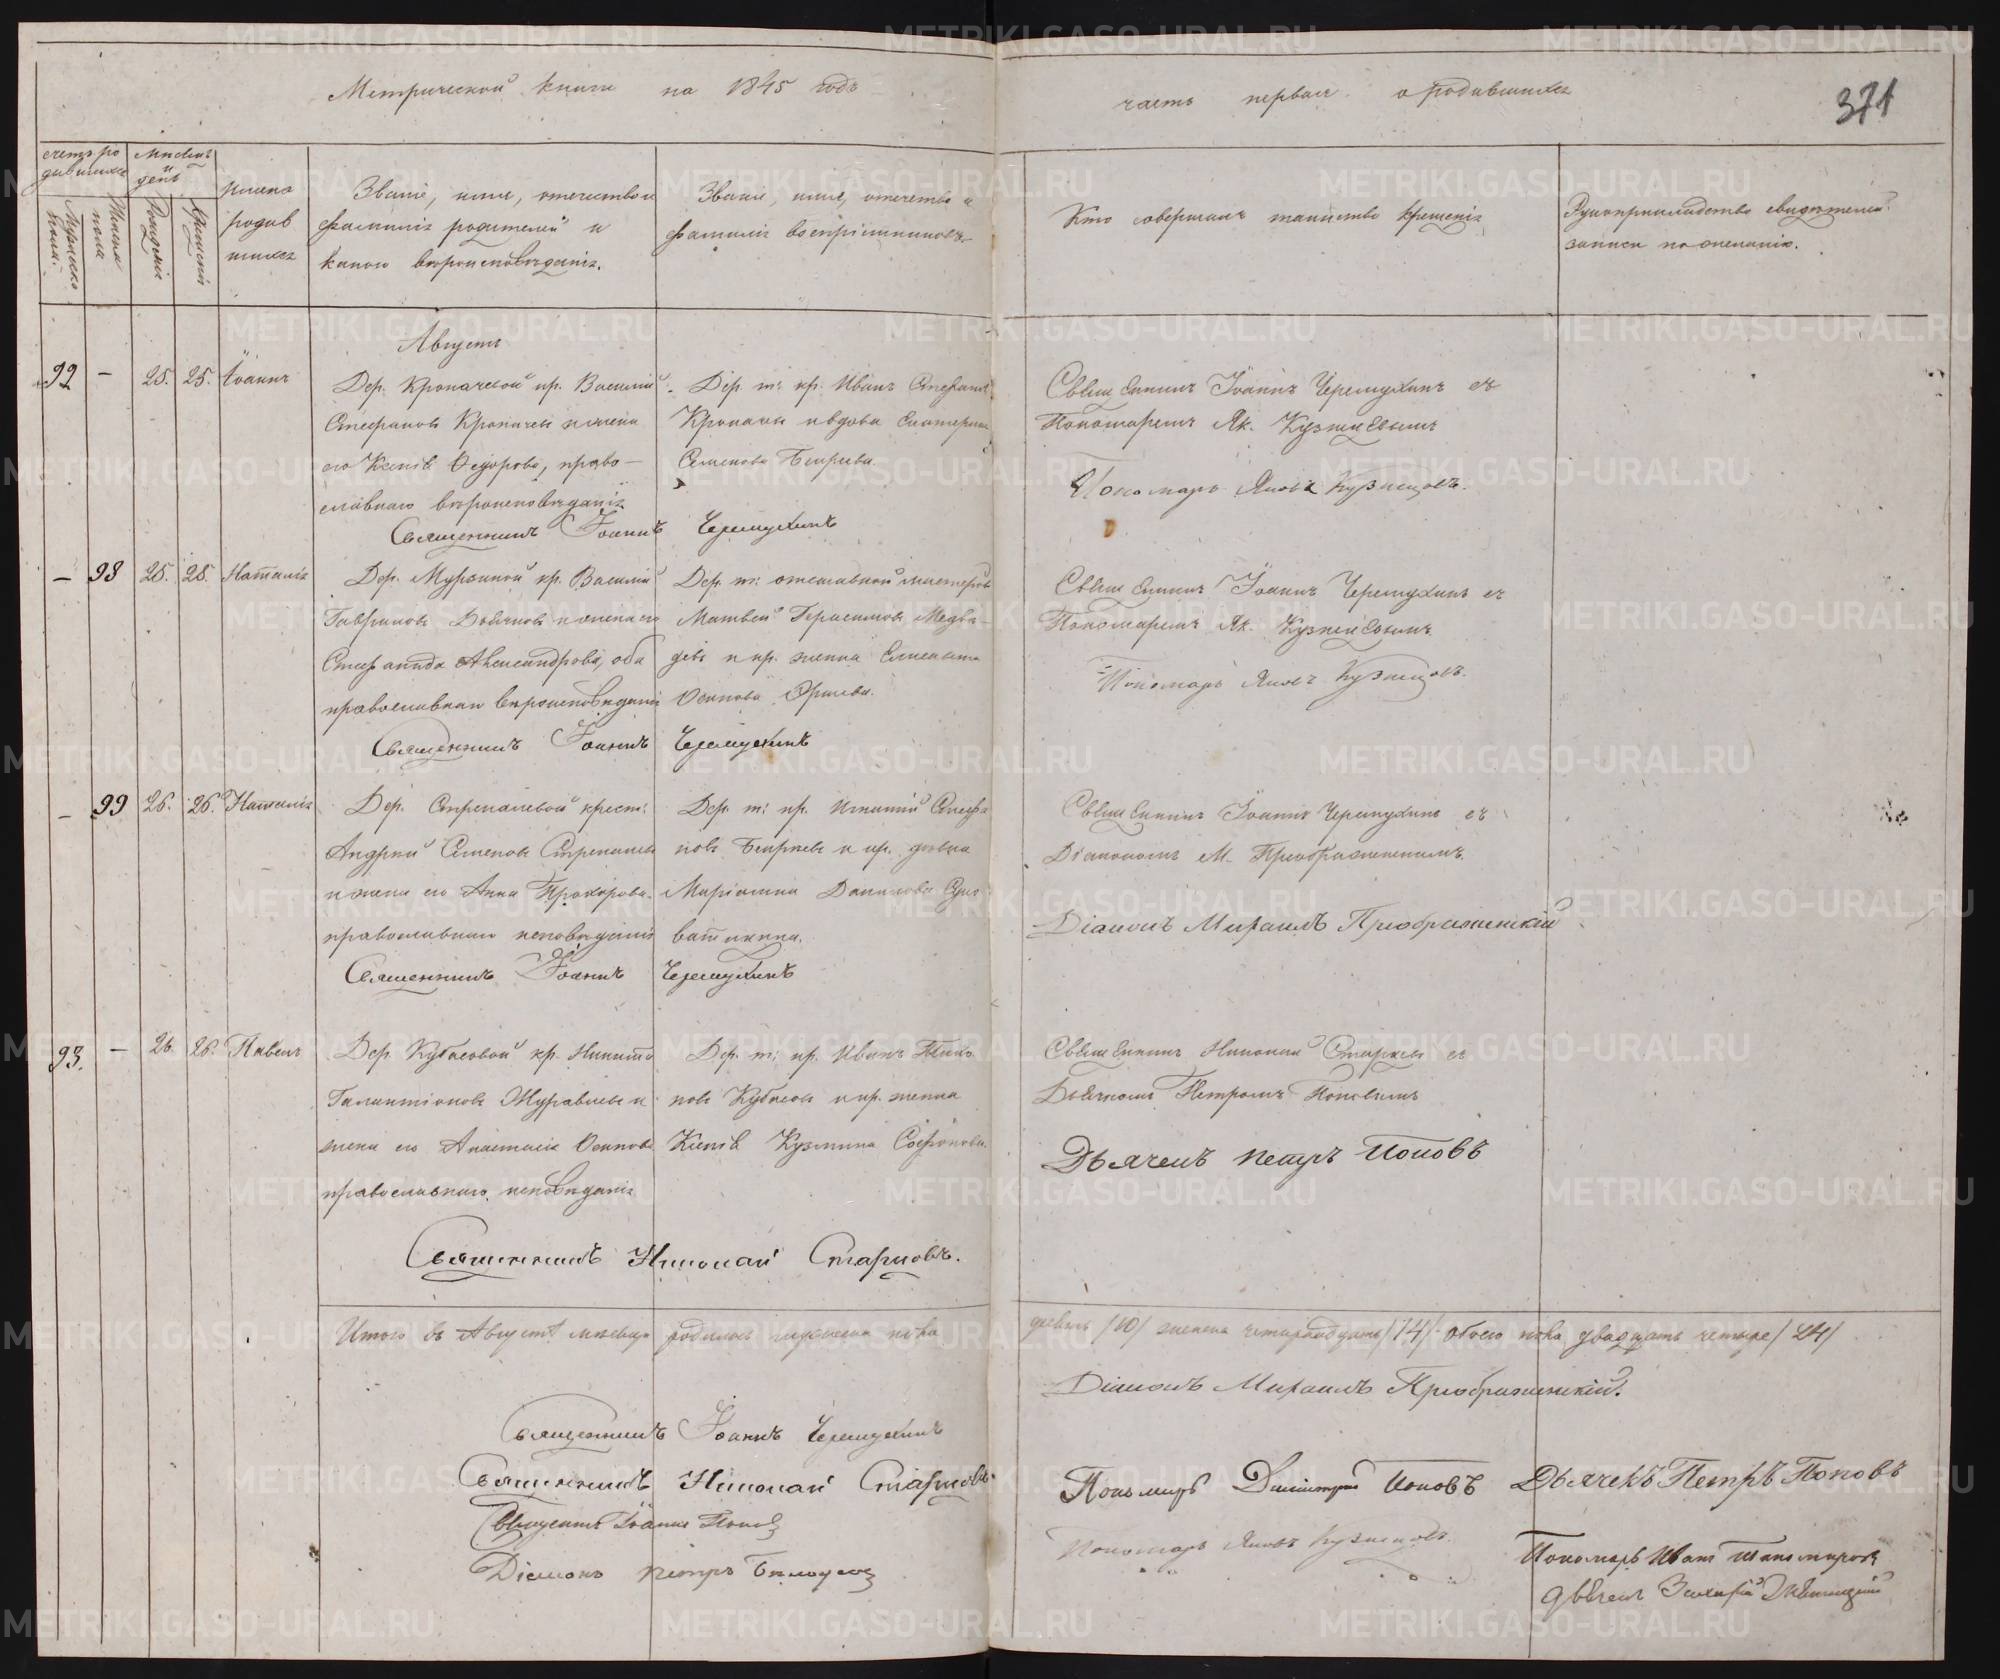 Метрической книги на 1845 годъ
часть первая о родившихся
371
счетъ родившихся
Мѣсяцъ и день
Мужеска
Женска пола
Рожденія
Крещенія
Имена родившихся
Званіе, имя, отчество и фамилія родителей и какого вѣроисповѣданія.
Званіе, имя, отчество и фамилія воспріемниковъ
Кто совершалъ таинство крещенія
Рукоприкладство свидѣтелей записи по желанію.
Августъ
92 — 25. 25. Іоаннъ
Дер. Кропачевой кр. Василій
Стефановъ Кропачевъ и жена
его Ксенія Ѳедорова, право-
славнаго вѣроисповѣданія
Дер. т: кр. Иванъ Стефановъ
Кропачевъ и вдова Екатерина
Семенова
Священникъ Іоаннъ Черемухинъ съ
Пономаремъ Як. Кузнецовымъ
Пономарь Яковъ Кузнецовъ.
Священникъ Іоаннъ Черемухинъ
— 98 25. 25. Наталія
Дер. Мурзиной кр. Василій
Гавриловъ и жена его
Стефанида Александрова, оба
православнаго вѣроисповѣданія
Дер. т: отставной мастеровой
Матвей Герасимовъ Медвѣ-
девъ и кр. женка
Осипова
Священникъ Іоаннъ Черемухинъ съ
Пономаремъ Як. Кузнецовымъ.
Пономарь Яковъ Кузнецовъ.
Священникъ Іоаннъ Черемухинъ
— 99 26. 26. Наталія
Дер. крест:
Андрей Семеновъ
и жена его Анна Прохорова.
православнаго исповѣданія
Дер. т: кр. Игнатій Стефа
новъ и кр. дѣвка
Маріамна Данилова
Священникъ Іоаннъ Черемухинъ съ
Діакономъ М. Преображенскимъ.
Діаконъ Михаилъ Преображенскій
Священникъ Іоаннъ Черемухинъ
93. — 26. 26. Павелъ
Дер. Кубасовой кр. Никита
Галактіоновъ Журавлевъ и
жена его Анастасія Осипова
православнаго исповѣданія
Дер. т: кр. Иванъ
новъ Кубасовъ и кр. женка
Ксенія Кузмина Софронова.
Священникъ Николай Старковъ съ
Дьячкомъ Петромъ Поповымъ
Дьячекъ Петръ Поповъ
Священникъ Николай Старковъ.
Итого въ Августѣ мѣсяцѣ родилось мужеска пола
десять /10/ женска четырнадцать /14/ обоего пола двадцать четыре /24/
Діаконъ Михаилъ Преображенскій.
Священникъ Іоаннъ Черемухинъ
Священникъ Николай Старковъ.
Священникъ Іоаннъ Поповъ
Діаконъ Петръ Бѣлоусовъ
Пономарь Димитрій Поповъ
Дьячекъ Петръ Поповъ
Пономарь Яковъ Кузнецовъ.
Пономарь Иванъ Тихомировъ